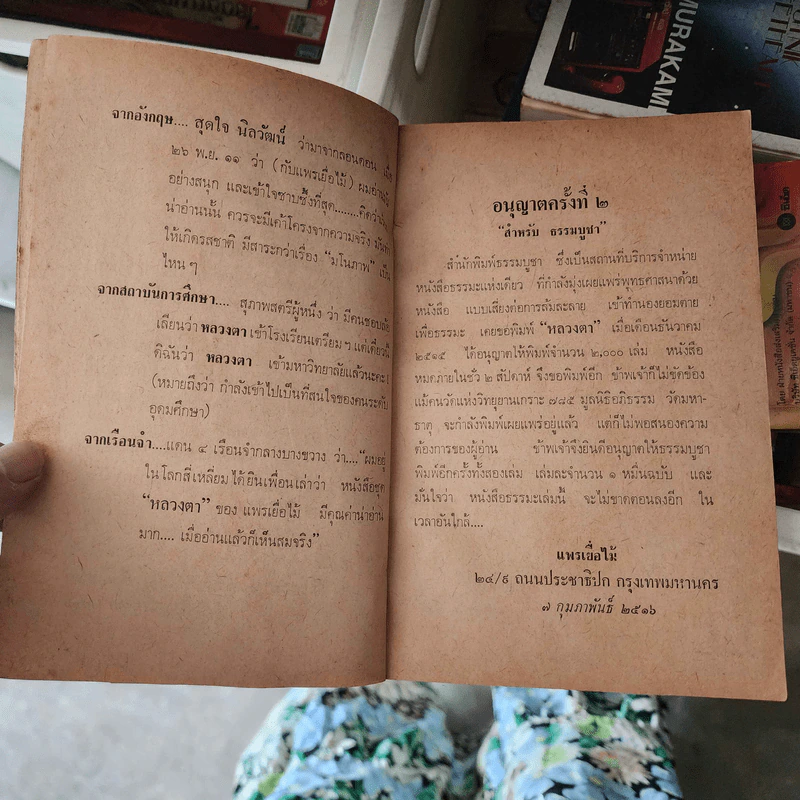 จากอังกฤษ.... สุดใจ นิลวัฒน์ ว่ามาจากลอนดอน เมื่อ
๒๖ พ.ย. ๑๑ ว่า (กับแพรเยื่อไม้) ผมอ่าน
อย่างสนุก และเข้าใจซาบซึ้งที่สุด........คิดว่า
น่าอ่านนั้น ควรจะมีเค้าโครงจากความจริง มัน
ให้เกิดรสชาติ มีสาระกว่าเรื่อง "มโนภาพ" เป็น
ไหน ๆ
จากสถาบันการศึกษา.... สุภาพสตรีผู้หนึ่ง ว่า มีคนชอบล้อ
เลียนว่า หลวงตา เข้าโรงเรียนเตรียม ฯ แต่เดี๋ยวนี้
ดิฉันว่า หลวงตา เข้ามหาวิทยาลัยแล้วนะคะ
(หมายถึงว่า กำลังเข้าไปเป็นที่สนใจของคนระดับ
อุดมศึกษา)
จากเรือนจำ....แดน ๔ เรือนจำกลางบางขวาง ว่า...."ผมอยู่
ในโลกสี่เหลี่ยม ได้ยินเพื่อนเล่าว่า หนังสือชุด
"หลวงตา" ของ แพรเยื่อไม้ มีคุณค่าน่าอ่าน
มาก.... เมื่ออ่านแล้วก็เห็นสมจริง"
อนุญาตครั้งที่ ๒
"สำหรับ ธรรมบูชา"
สำนักพิมพ์ธรรมบูชา ซึ่งเป็นสถานที่บริการจำหน่าย
หนังสือธรรมะแห่งเดียว ที่กำลังมุ่งเผยแพร่พุทธศาสนาด้วย
หนังสือ แบบเสี่ยงต่อการล้มละลาย เข้าทำนองยอมตาย
เพื่อธรรมะ เคยขอพิมพ์ "หลวงตา" เมื่อเดือนธันวาคม
๒๕๑๕ ได้อนุญาตให้พิมพ์จำนวน ๒,๐๐๐ เล่ม หนังสือ
หมดภายในชั่ว ๒ สัปดาห์ จึงขอพิมพ์อีก ข้าพเจ้าก็ไม่ขัดข้อง
แม้คนวัดแห่งวิทยุยานเกราะ ๗๘๕ มูลนิธิอภิธรรม วัดมหา-
ธาตุ จะกำลังพิมพ์เผยแพร่อยู่แล้ว แต่ก็ไม่พอสนองความ
ต้องการของผู้อ่าน ข้าพเจ้าจึงยินดีอนุญาตให้ธรรมบูชา
พิมพ์อีกครั้งทั้งสองเล่ม เล่มละจำนวน ๑ หมื่นฉบับ และ
มั่นใจว่า หนังสือธรรมะเล่มนี้ จะไม่ขาดตอนลงอีก ใน
เวลาอันใกล้....
แพรเยื่อไม้
๒๔/๙ ถนนประชาธิปก กรุงเทพมหานคร
๗ กุมภาพันธ์ ๒๕๑๖
MURAKAMI